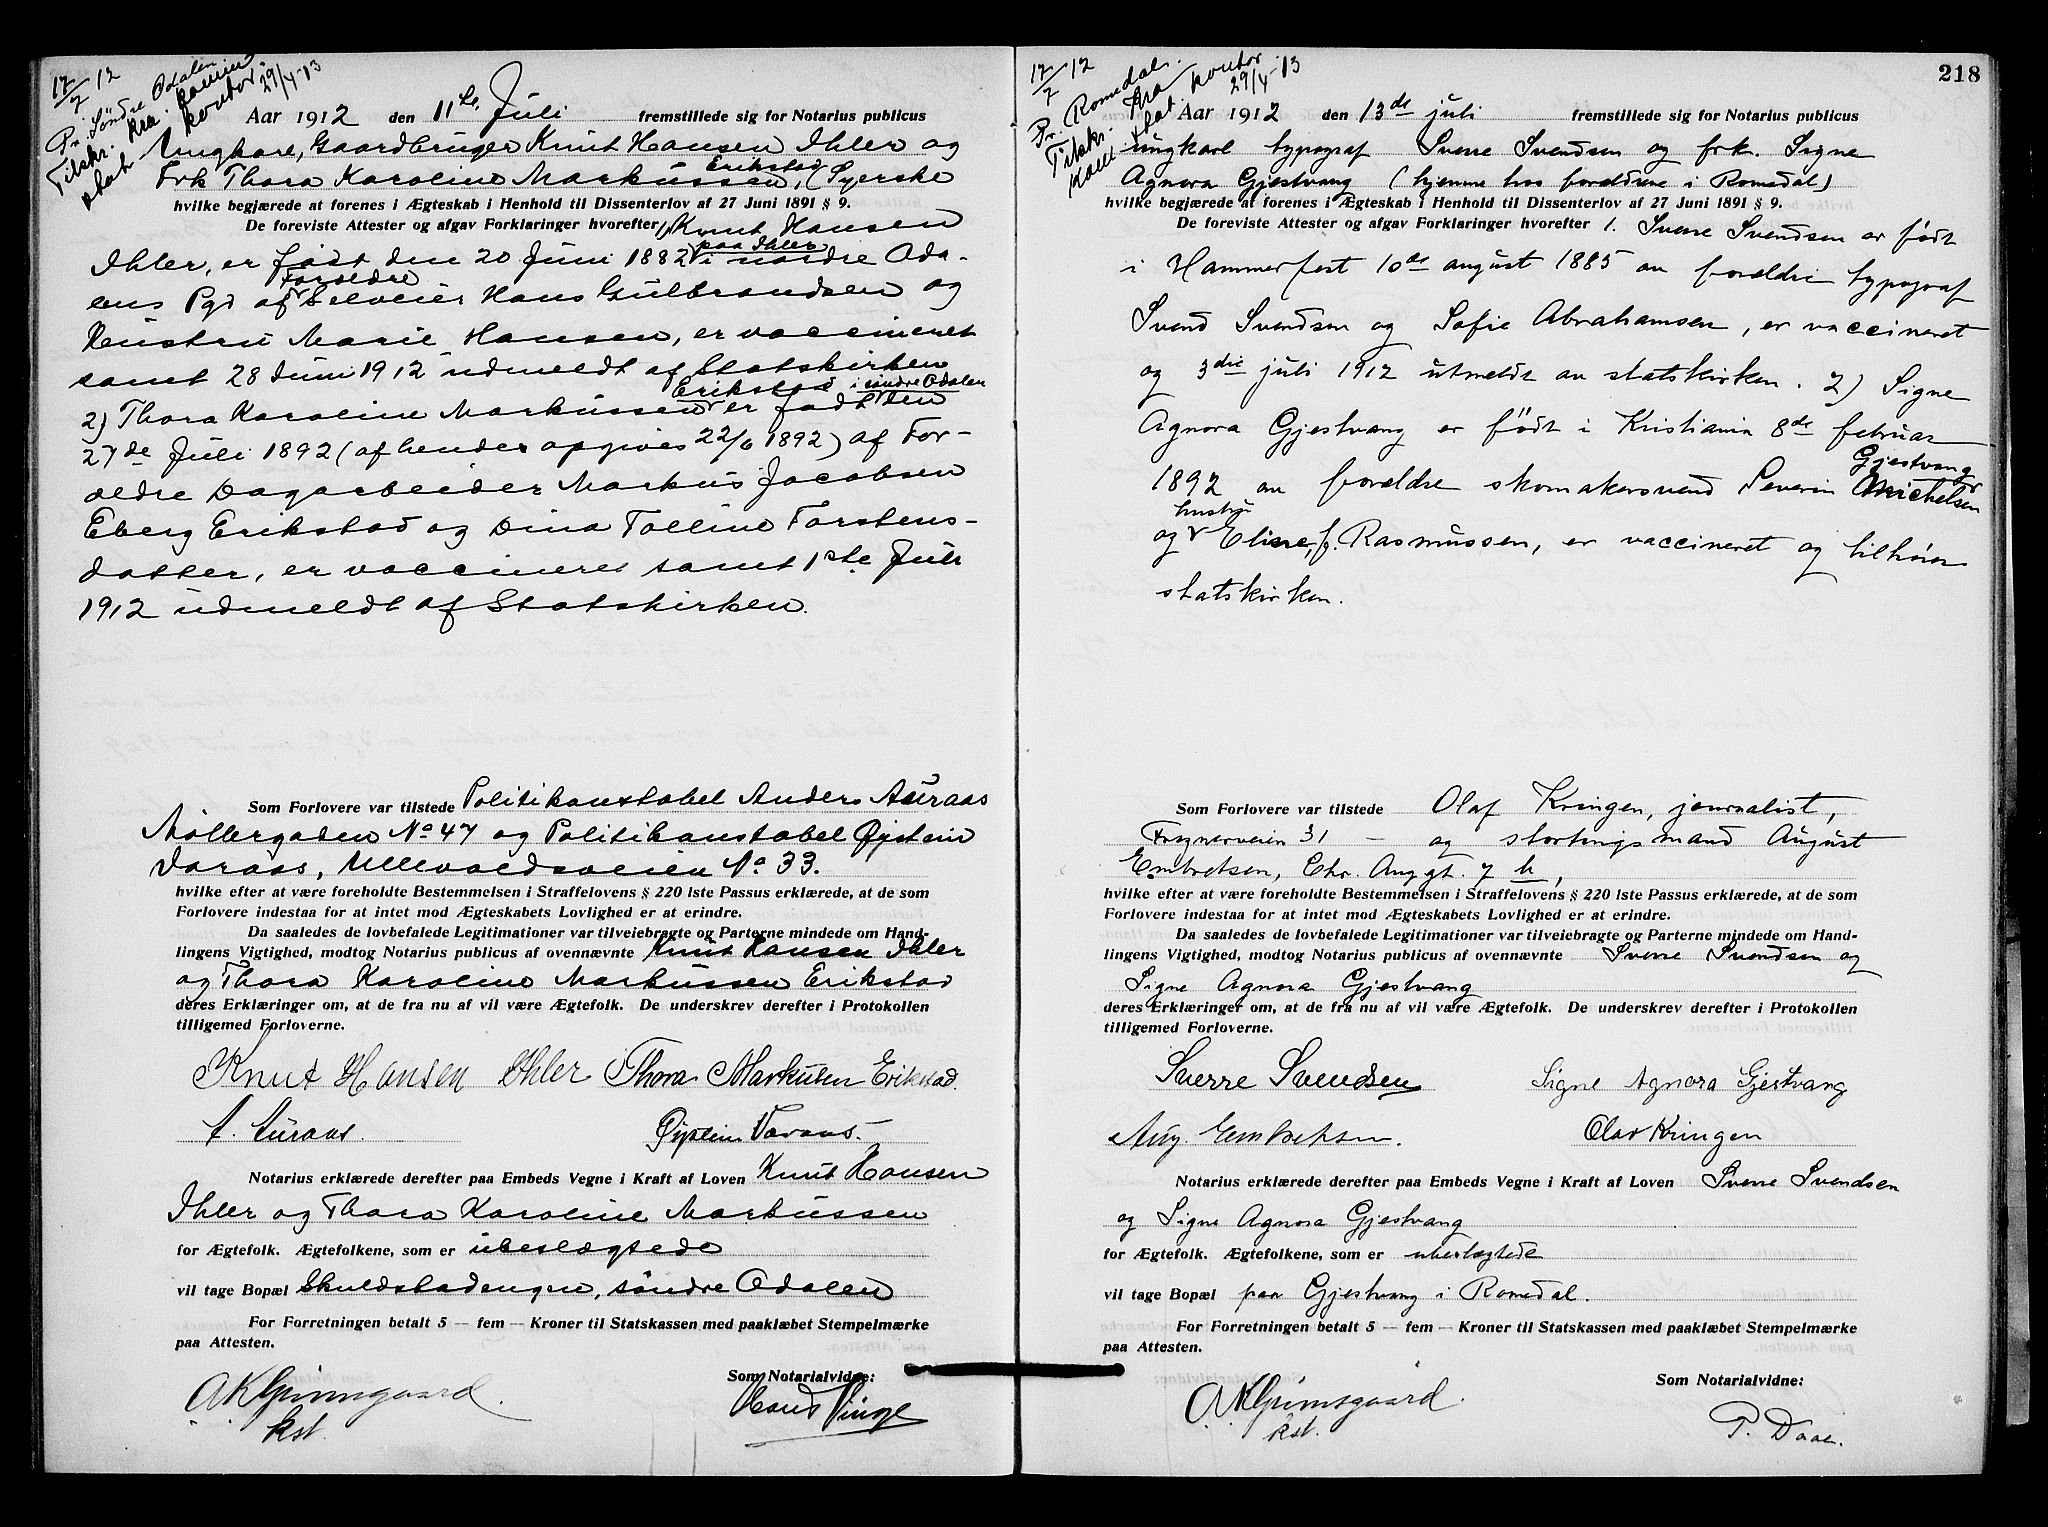 17/7 12
Pr. Søndre Odalen
Tilskr. Kra.
kontor 29/4-13
Aar 1912 den 11te Juli fremstillede sig for Notarius publicus
Ungkarl, Gaardbruger Knut Hansen Ihler og
Erikstad
Frk Thora Karoline Markussen, (Syerske
hvilke begjærede at forenes i Ægteskab i Henhold til Dissenterlov af 27 Juni 1891 § 9.
De foreviste Attester og afgav Forklaringer hvorefter 1) Knut Hansen
paa Ihler
Ihler, er født den 20 Juni 1882 i nordre Oda-
Forældre
lens Pgd af Selveier Hans Gulbrandsen og
Hustru Marie Hansen, er vaccineret
samt 28 Juni 1912 udmeldt af Statskirken
Erikstad i søndre Odalen
2) Thora Karoline Markussen er født den
27de Juli 1892 (af hende opgives 22/6 1892) af For-
ældre Dagarbeider Markus Jacobsen
Eberg Erikstad og Dina Tolline Torstens-
datter, er vaccineret samt 1ste Juli
1912 udmeldt af Statskirken.
Som Forlovere var tilstede Politikonstabel Anders Auraas
Møllergaden No 47 og Politikonstabel Øystein
Varaas, Ullevoldsveien No 33.
hvilke efter at være foreholdte Bestemmelsen i Straffelovens § 220 1ste Passus erklærede, at de som
Forlovere indestaa for at intet mod Ægteskabets Lovlighed er at erindre.
Da saaledes de lovbefalede Legitimationer var tilveiebragte og Parterne mindede om Hand-
lingens Vigtighed, modtog Notarius publicus af ovennævnte Knut Hansen Ihler
og Thora Karoline Markussen Erikstad
deres Erklæringer om, at de fra nu af vil være Ægtefolk. De underskrev derefter i Protokollen
tilligemed Forloverne.
Knut Hansen Ihler Thora Markusen Erikstad.
A. Auraas. Øystein Varaas.
Notarius erklærede derefter paa Embeds Vegne i Kraft af Loven Knut Hansen
Ihler og Thora Karoline Markussen
for Ægtefolk. Ægtefolkene, som er ubeslægtede
vil tage Bopæl Skuldstadengen, søndre Odalen
For Forretningen betalt 5 — fem — Kroner til Statskassen med paaklæbet Stempelmærke
paa Attesten.
Som Notarialvidne:
AKGrimsgaard. Hans Vinge
kst.
218
17/7 12
Pr. Romedal.
Tilskr. Kra kontor
29/4-13
Aar 1912 den 13de juli fremstillede sig for Notarius publicus
ungkarl typograf Sverre Svendsen og frk. Signe
Agnora Gjestvang (hjemme hos forældrene i Romedal)
hvilke begjærede at forenes i Ægteskab i Henhold til Dissenterlov af 27 Juni 1891 § 9.
De foreviste Attester og afgav Forklaringer hvorefter 1. Sverre Svendsen er født
i Hammerfest 10de august 1885 av forældre typograf
Svend Svendsen og Sofie Abrahamsen, er vaccineret
og 3die juli 1912 utmeldt av statskirken. 2) Signe
Agnora Gjestvang er født i Kristiania 8de februar
Gjestvang
1892 av forældre skomakersvend Severin Michelsen
hustru
og Eline, f. Rasmussen, er vaccineret og tilhører
statskirken.
Som Forlovere var tilstede Olaf Kringen, journalist,
Frognerveien 31 — og stortingsmand August
Embretsen, Chr. Aug.gt. 7 b,
hvilke efter at være foreholdte Bestemmelsen i Straffelovens § 220 1ste Passus erklærede, at de som
Forlovere indestaa for at intet mod Ægteskabets Lovlighed er at erindre.
Da saaledes de lovbefalede Legitimationer var tilveiebragte og Parterne mindede om Hand-
lingens Vigtighed, modtog Notarius publicus af ovennævnte Sverre Svendsen og
Signe Agnora Gjestvang
deres Erklæringer om, at de fra nu af vil være Ægtefolk. De underskrev derefter i Protokollen
tilligemed Forloverne.
Sverre Svendsen Signe Agnora Gjestvang
Aug Embretsen. Olav Kringen
Notarius erklærede derefter paa Embeds Vegne i Kraft af Loven Sverre Svendsen
og Signe Agnora Gjestvang
for Ægtefolk. Ægtefolkene, som er ubeslægtede
vil tage Bopæl paa Gjestvang i Romedal.
For Forretningen betalt 5 — fem — Kroner til Statskassen med paaklæbet Stempelmærke
paa Attesten.
Som Notarialvidne:
AKGrimsgaard. P. Daae.
kst.